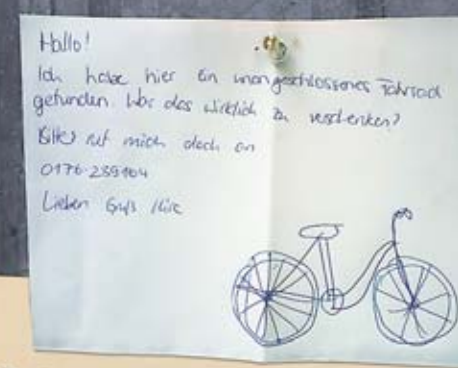 Hallo!
Ich habe hier ein unangeschlossenes Fahrrad
gefunden. War das wirklich zu verschenken?
Bitte ruf mich doch an
0176-239164
Lieben Gruß